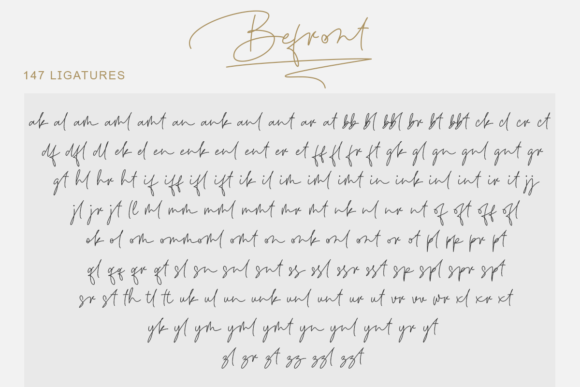 Befront
147 LIGATURES
ak al am aml amt an ank anl ant ar at bb bl bbl br bt bbt ck cl cr ct
df dfl dl ek el en enk enl ent er et ff fl fr ft gk gl gn gnl gnt gr
gt hl hr ht if iff ifl ift ik il im iml imt in ink inl int ir it jj
jl jr jt ll ml mm mml mmt mr mt nk nl nr nt of oft off ofl
ok ol om ommoml omt on onk onl ont or ot pl pp pr pt
ql qq qr qt sl sn snl snt ss ssl ssr sst sp spl spr spt
sr st th tl tt uk ul un unk unl unt ur ut vr vv wr xl xr xt
yk yl ym yml ymt yn ynl ynt yr yt
zl zr zt zz zzl zzt